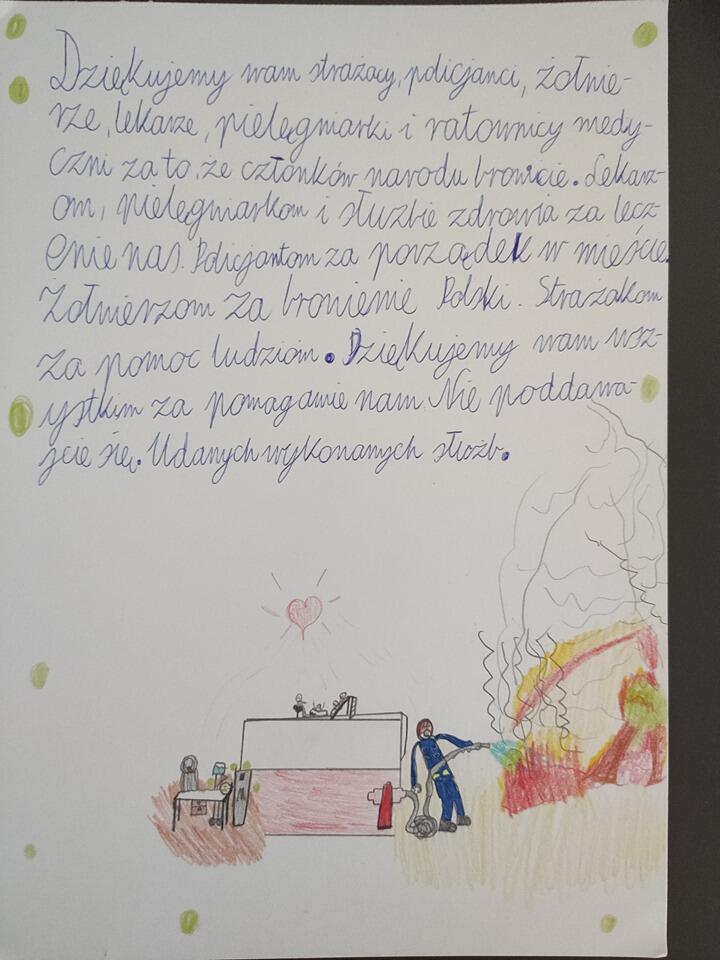 Dziękujemy wam strażacy, policjanci, żołnie-
rze, lekarze, pielęgniarki i ratownicy medy-
czni za to, że członków narodu bronicie. Lekarz-
om, pielęgniarkom i służbie zdrowia za lecz-
enie nas. Policjantom za porządek w mieście.
Żołnierzom za bronienie Polski. Strażakom
za pomoc ludziom. Dziękujemy wam wsz-
ystkim za pomaganie nam. Nie poddawa-
jcie się. Udanych wykonanych służb.